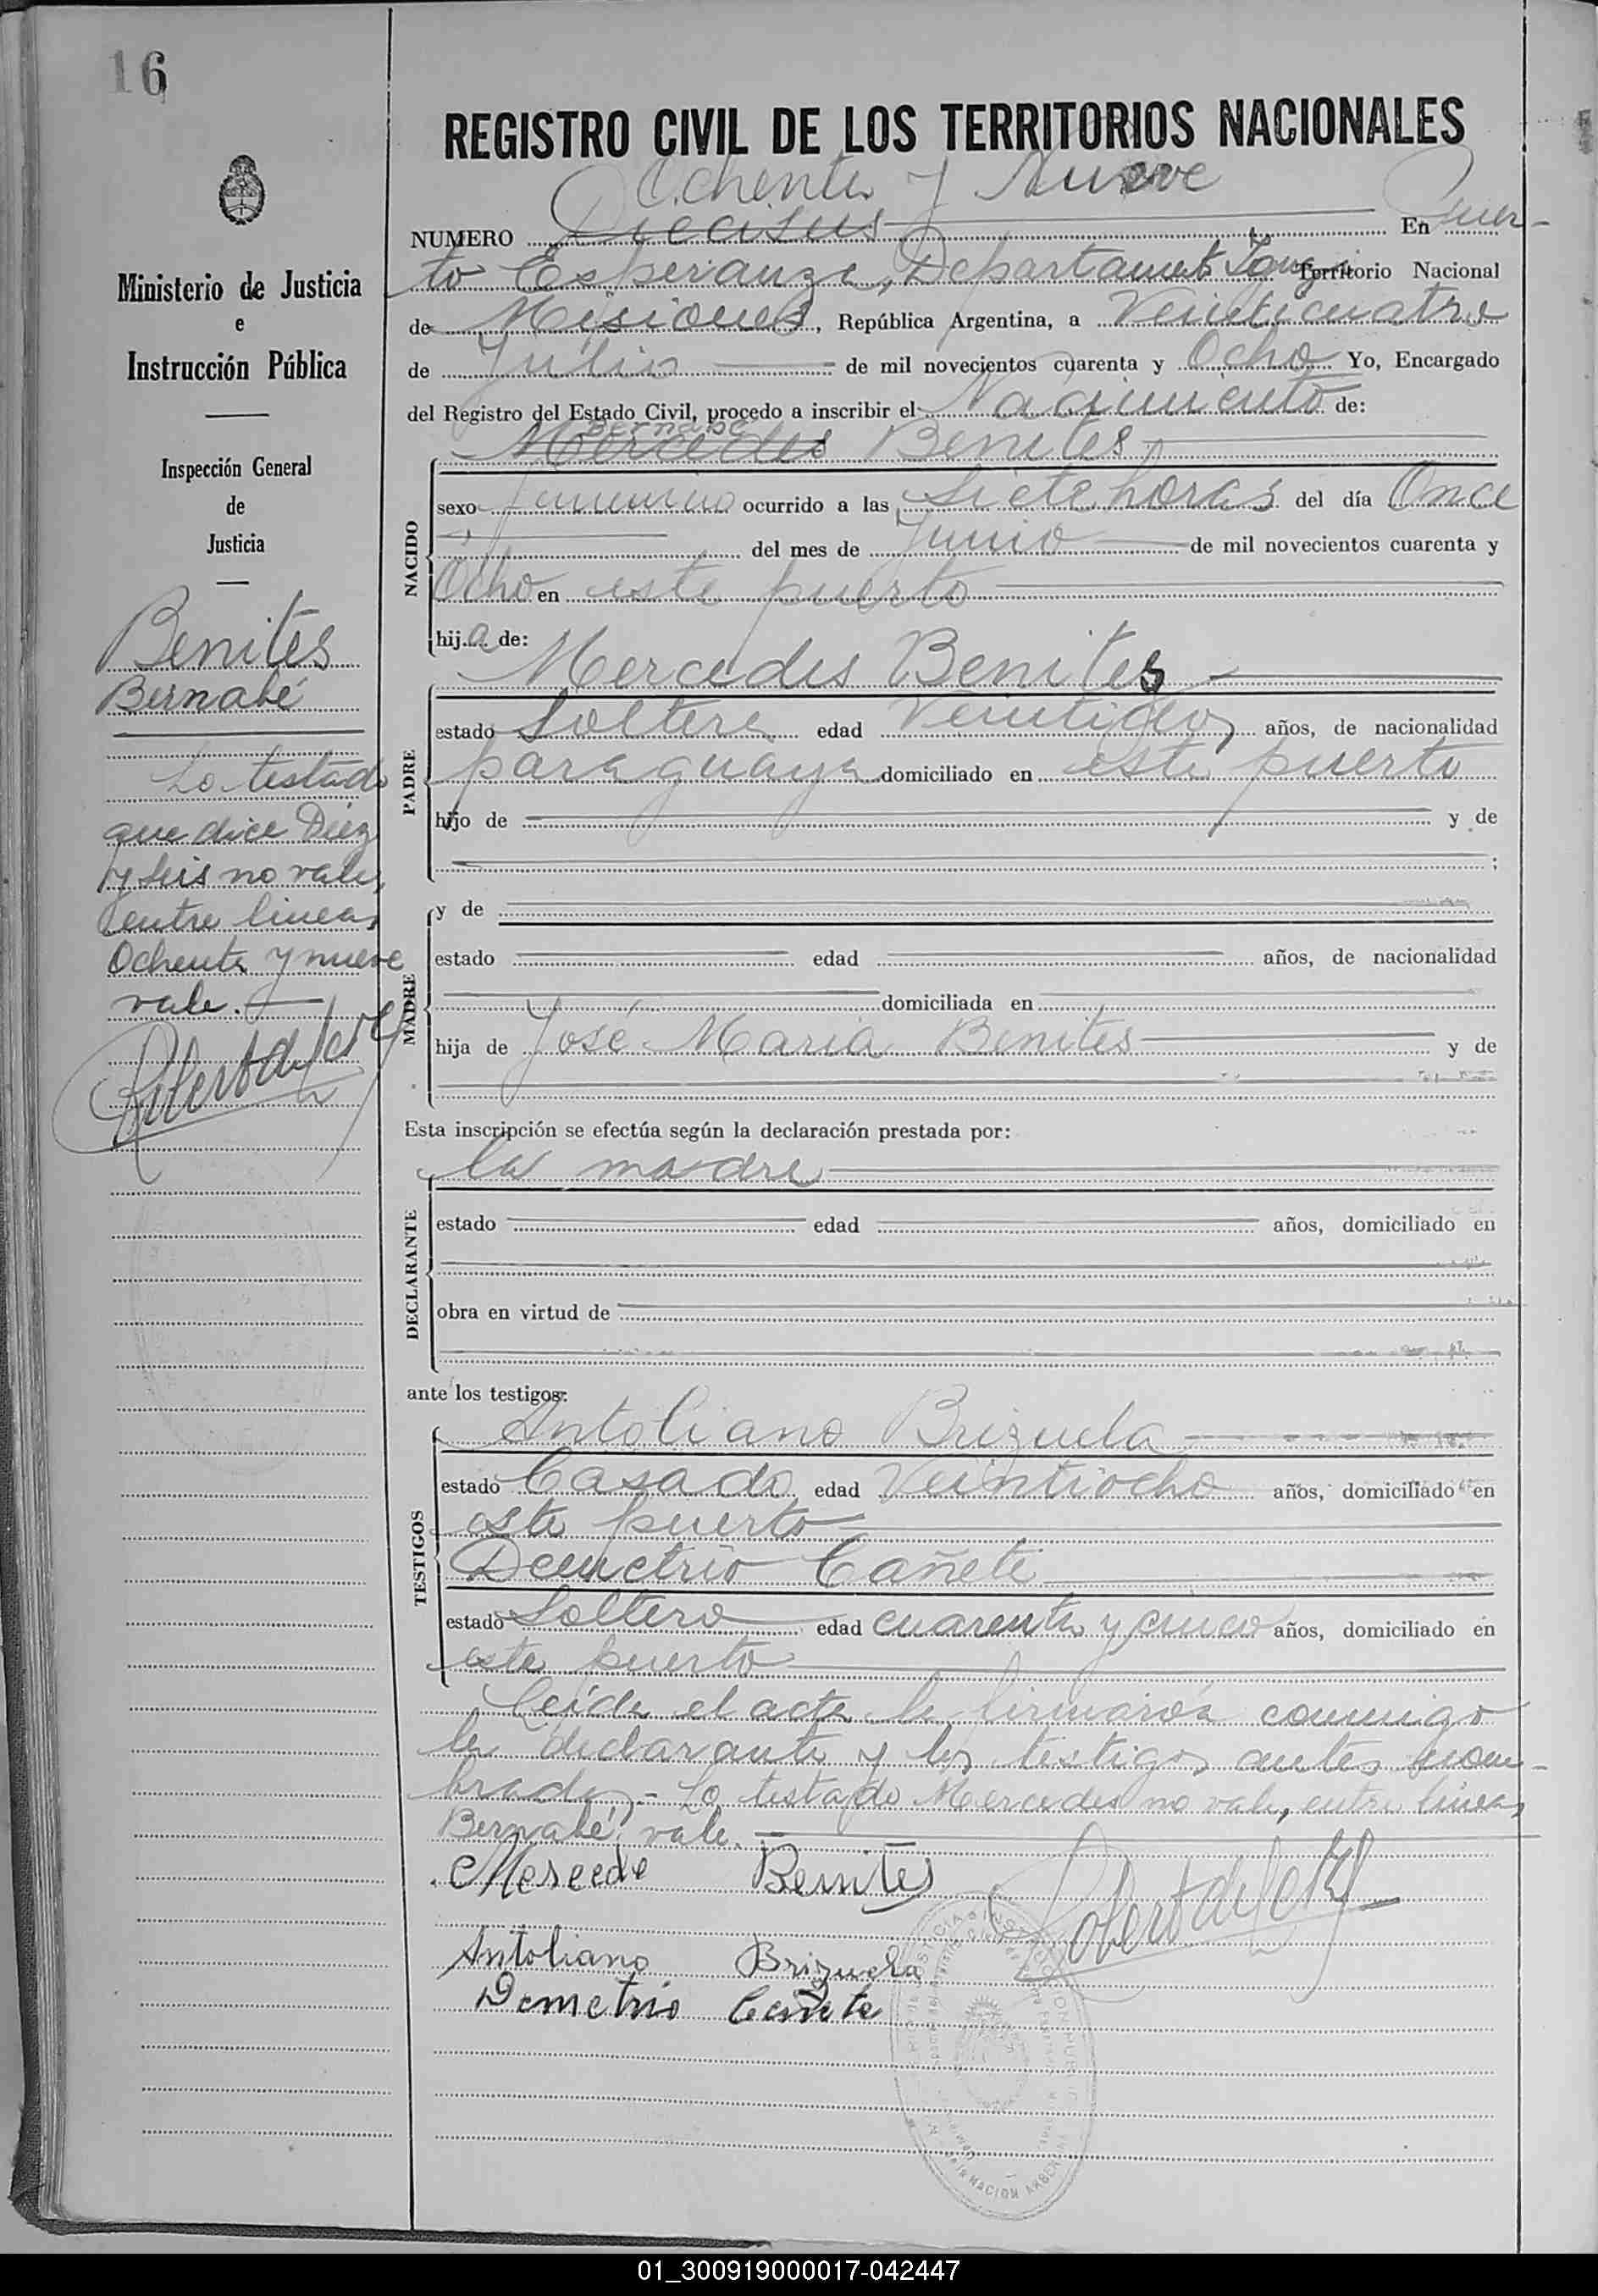 16
REGISTRO CIVIL DE LOS TERRITORIOS NACIONALES
Ochenta y Nueve
NUMERO Dieciseis En Puer-
to Esperanza, Departament Iguazú Territorio Nacional
de Misiones, República Argentina, a Veinticuatro
de Julio de mil novecientos cuarenta y Ocho Yo, Encargado
del Registro del Estado Civil, procedo a inscribir el Nacimiento de:
Bernabé
Mercedes Benites
NACIDO
sexo femenino ocurrido a las Siete horas del día Once
del mes de Junio de mil novecientos cuarenta y
Ocho en este puerto
hija de:
Mercedes Benites
PADRE
estado Soltera edad Veintidos años, de nacionalidad
paraguaya domiciliado en este puerto
hijo de y de
;
MADRE
y de
estado edad años, de nacionalidad
domiciliada en
hija de José Maria Benites y de
Esta inscripción se efectúa según la declaración prestada por:
la madre
DECLARANTE
estado edad años, domiciliado en
obra en virtud de
ante los testigos:
TESTIGOS
Antoliano Brizuela
estado Casado edad Veintiocho años, domiciliado en
este puerto
Demetrio Cañete
estado Soltero edad cuarenta y cinco años, domiciliado en
este puerto
Leida el acta la firmaron conmigo
la declarante y los testigos antes nom-
brados.- Lo testado Mercedes no vale, entre lineas
Bernabé, vale.
Mersede Benites
Antoliano Brizuela
Demetrio Cañete
Ministerio de Justicia
e
Instrucción Pública
Inspección General
de
Justicia
Benites
Bernabé
Lo testado
que dice Diez
y seis no vale,
entre lineas
Ochenta y nueve
vale.
01_300919000017-042447